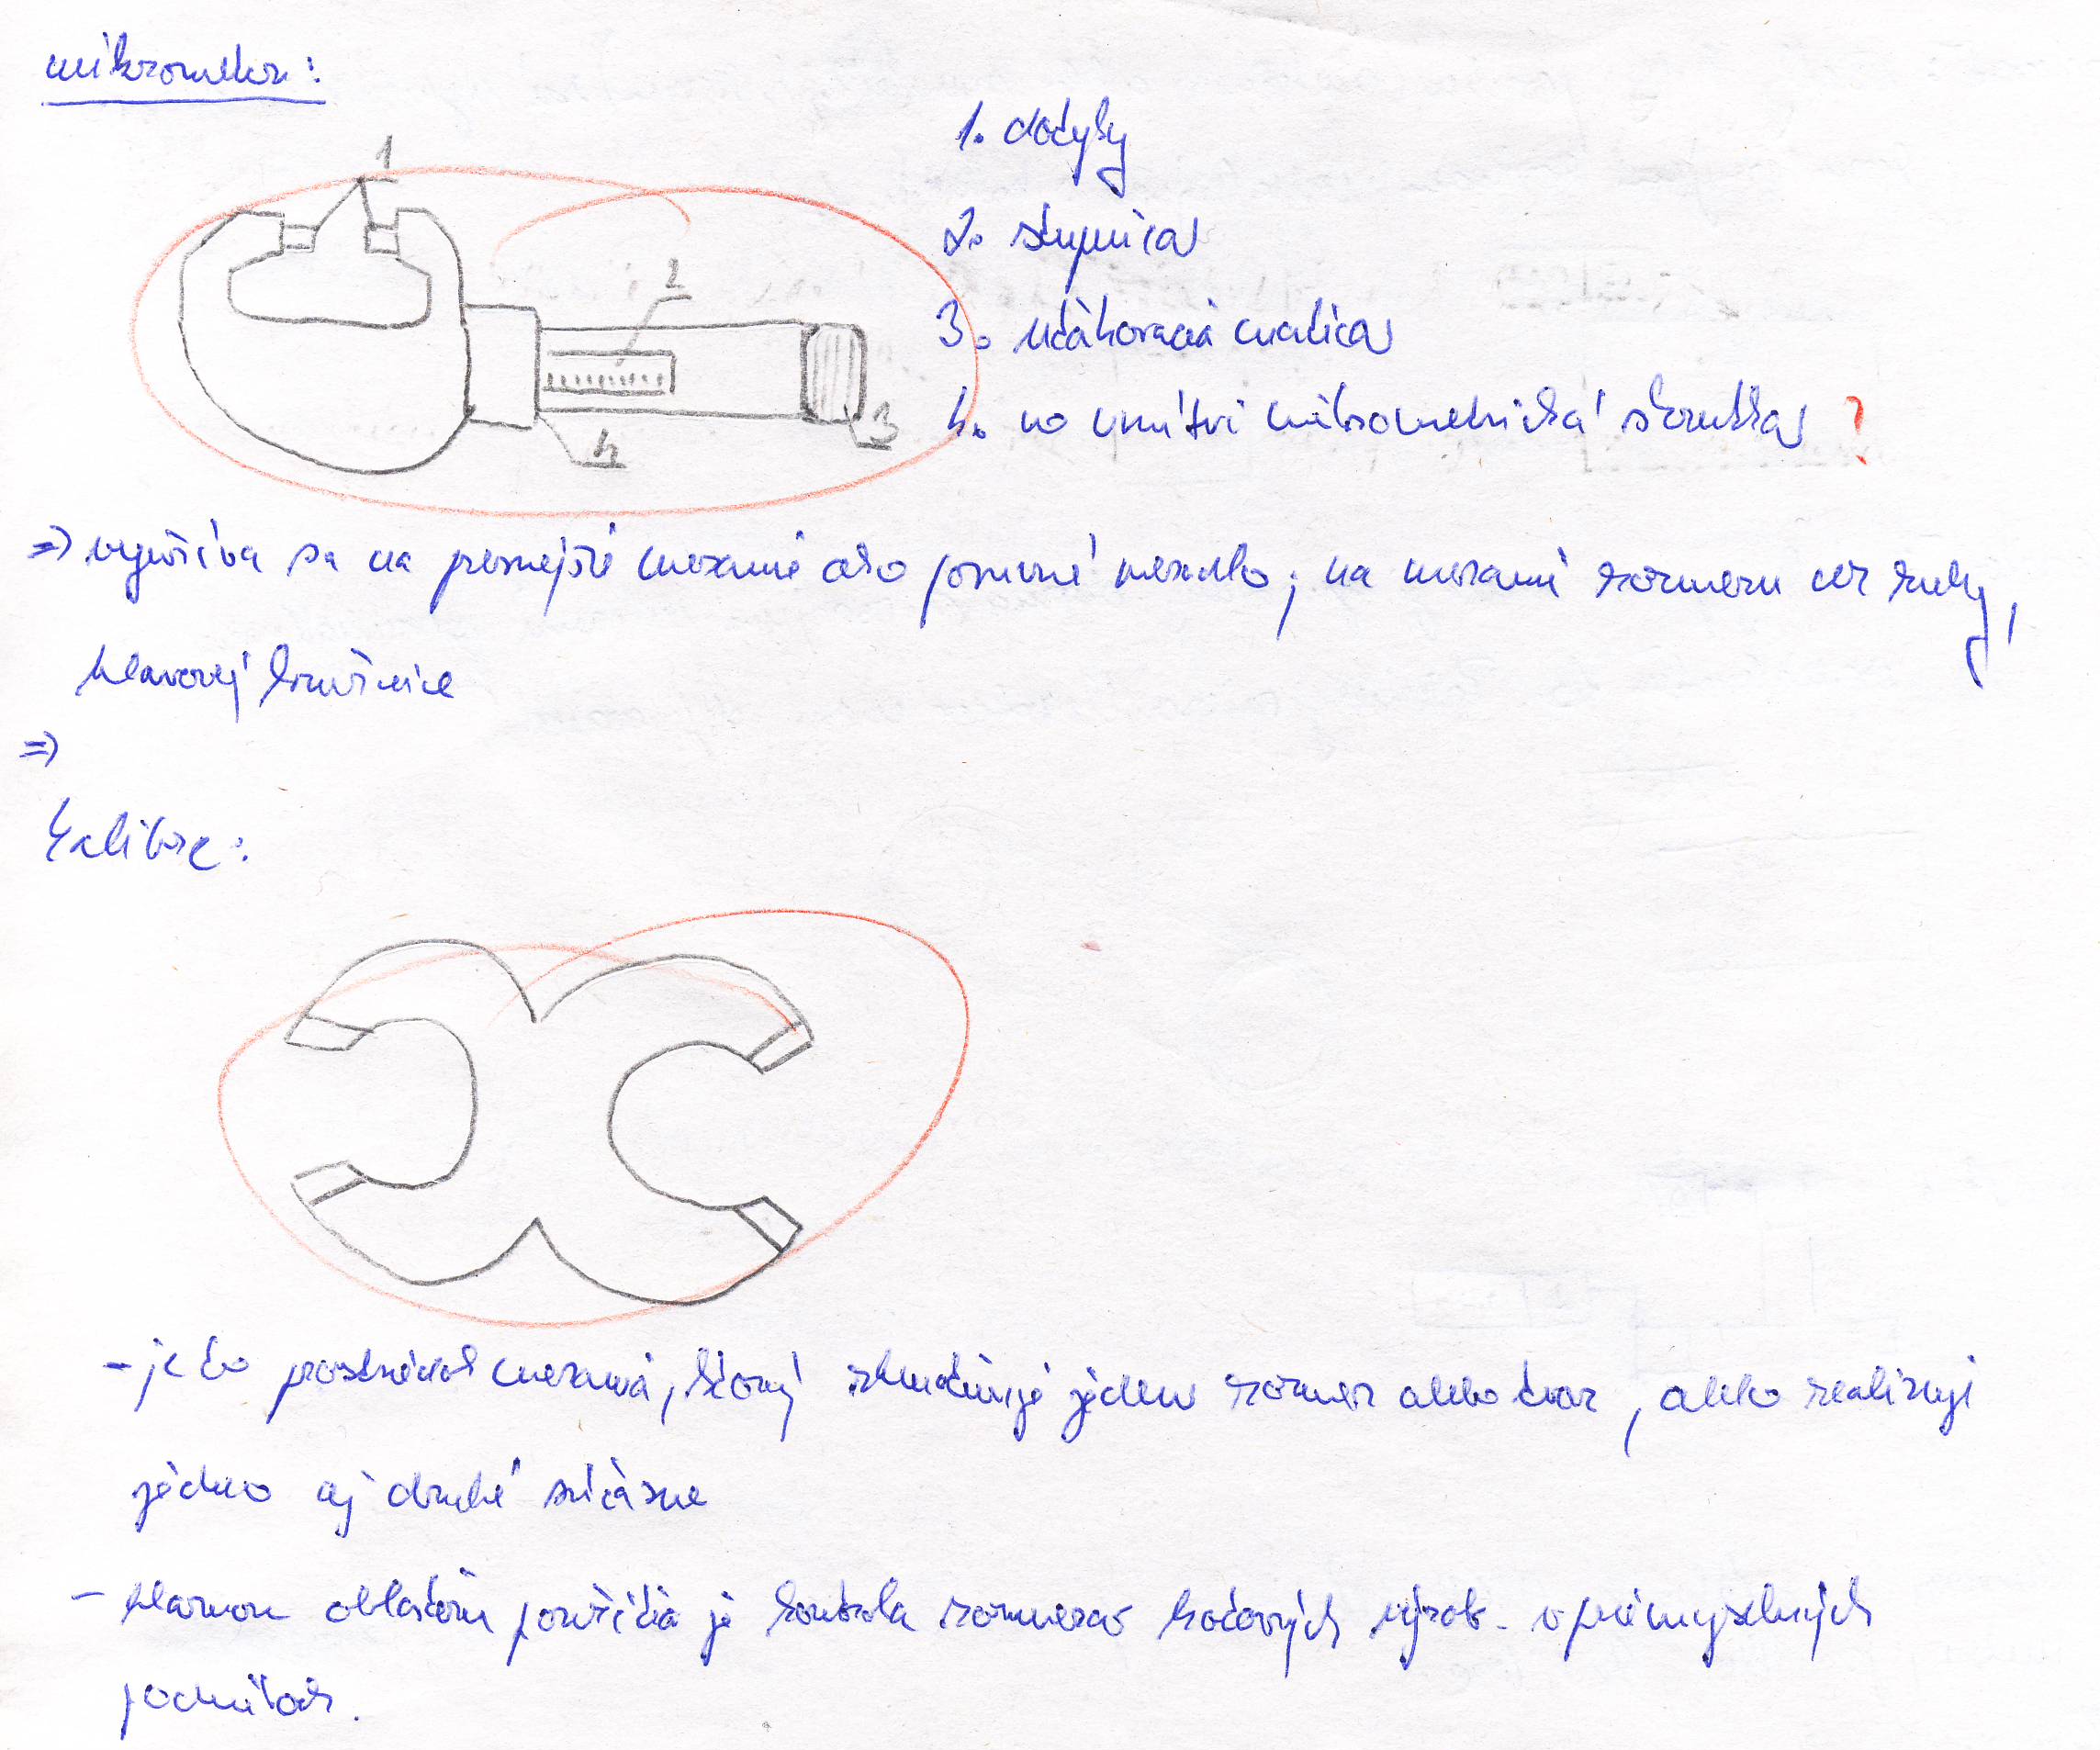 mikrometer:
1
1. dotyky
2. stupnica
2
3. uťahovacia matica
3
4. vo vnútri mikrometrická skrutka ?
4
=> využíva sa na presnejšie meranie ako posuvné meradlo; na meranie rozmeru cez zuby,
hlavovej kružnice
=>
Kalibre:
- je to prostriedok merania, ktorý stelesňuje jeden rozmer alebo tvar, alebo realizuje
jedno aj druhé súčasne
- hlavnou oblasťou použitia je kontrola rozmerov hotových výrob. v priemyselných
podnikoch.